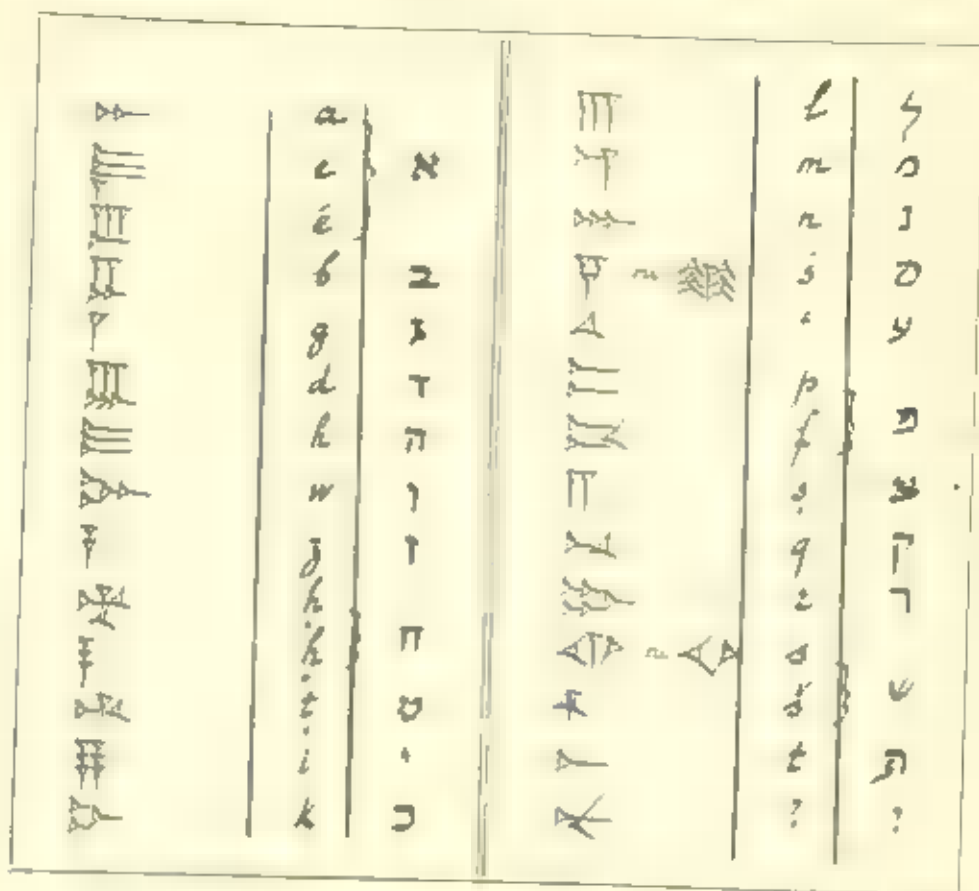 𐎀 a
𐎛 e א
𐎜 é
𐎁 b ב
𐎂 g ג
𐎄 d ד
𐎅 h ה
𐎆 w ו
𐎇 z ז
𐎈 ḥ
𐎃 ḫ ח
𐎉 ṭ ט
𐎊 i י
𐎋 k כ
𐎍 l ל
𐎎 m מ
𐎐 n נ
𐎒 ~ 𐎝 ś ס
𐎓 ʿ ע
𐎔 p
f פ
𐎕 ṣ צ
𐎖 q ק
𐎗 r ר
𐎌 ~ s
š ש
𐎚 t ת
? ?